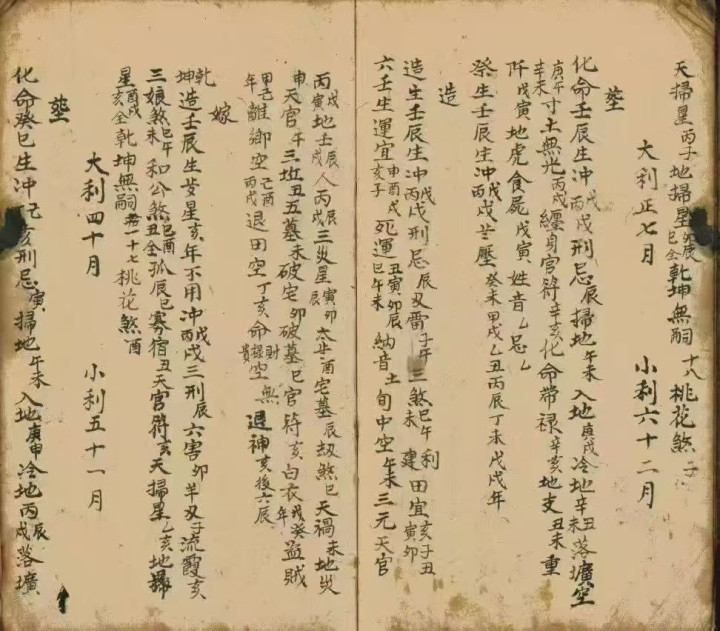 天掃星丙子地掃星卯辰巳全乾坤無嗣十八桃花煞子
大利正七月 小利六十二月
塟
化命壬辰生冲丙戌戊戌刑忌辰掃地午未入地庚戌冷地辛丑辛未落壙空
庚午辛未寸土無光丙戌纏身官符辛亥化命帶禄辛亥地支丑未重
阡戊寅地虎食屍戊寅姓音乙忌乙
祭生壬辰生冲丙戌戊戌芒壓癸未甲戌乙丑丙辰丁未戊戌年
造
造生壬辰生冲丙戌戊戌刑忌辰刄雷子午三煞巳午未利建田宜亥子丑寅卯
六壬生運宜申酉戌亥子死運丑寅卯辰巳午未納音土旬中空午未三元天官
丙寅戊戌地壬戌人丙辰戌三災星寅卯辰太歩酉宅墓辰刼煞巳天禍未地災
申天官午三坵丑五墓未破宅卯破墓巳官符亥白衣戌年癸盗賊
甲己年離鄉空己酉丙戌退田空丁亥命財貴禄空無退神亥後六辰
嫁
乾坤造壬辰生安星亥年不用冲丙戌戊戌三刑辰六害卯羊刄子流霞亥
三娘煞巳午未和公煞巳酉丑全孤辰巳寡宿丑天官符亥天掃星乙亥地掃
星酉戌亥全乾坤無嗣廿一十七桃花煞酉
大利四十月 小利五十一月
塟
化命癸巳生冲己亥刑忌寅掃地午未入地庚申冷地丙辰戌落壙